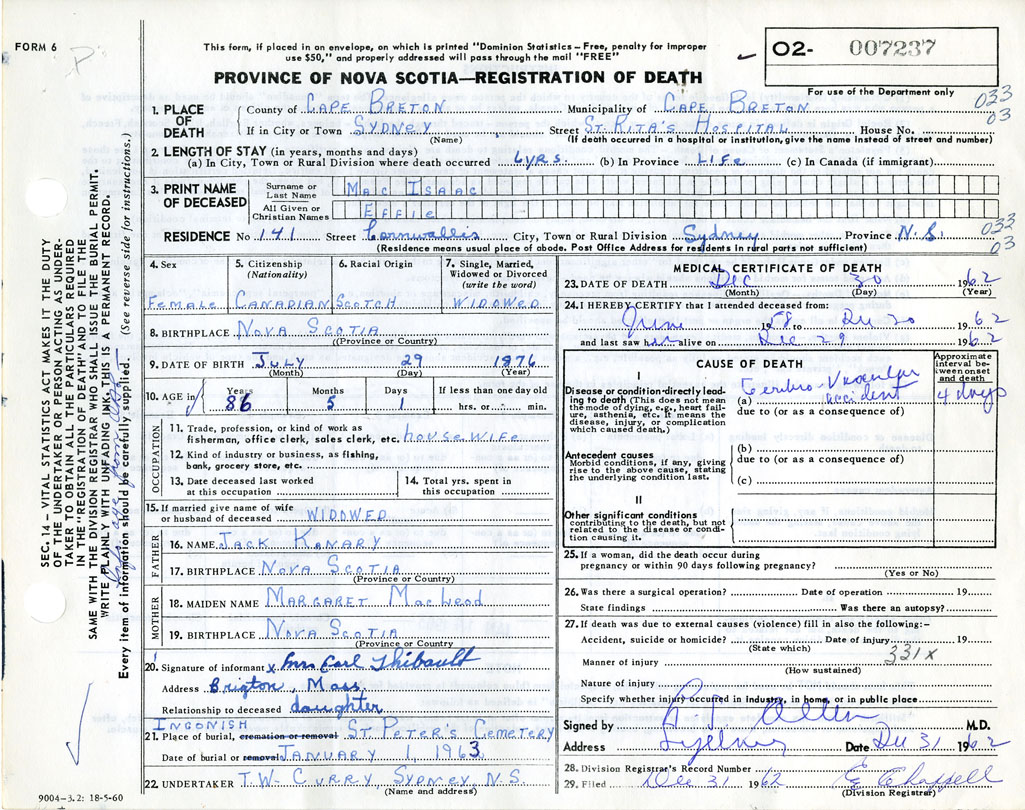 FORM 6
P
This form, if placed in an envelope, on which is printed "Dominion Statistics – Free, penalty for improper
use $50," and properly addressed will pass through the mail "FREE"
PROVINCE OF NOVA SCOTIA—REGISTRATION OF DEATH
O2- 007237
For use of the Department only
033
03
1. PLACE OF DEATH
County of CAPE BRETON Municipality of CAPE BRETON
If in City or Town SYDNEY Street ST. RITA'S HOSPITAL House No.
(Name) (If death occurred in a hospital or institution, give the name instead of street and number)
2. LENGTH OF STAY (in years, months and days)
(a) In City, Town or Rural Division where death occurred 6 yrs. (b) In Province LIFE (c) In Canada (if immigrant)
3. PRINT NAME OF DECEASED
Surname or Last Name MAC ISAAC
All Given or Christian Names EFFIE
RESIDENCE No 141 Street Cornwallis City, Town or Rural Division Sydney Province N.S.
033
03
(Residence means usual place of abode. Post Office Address for residents in rural parts not sufficient)
4. Sex
FEMALE
5. Citizenship (Nationality)
CANADIAN
6. Racial Origin
SCOTCH
7. Single, Married, Widowed or Divorced (write the word)
WIDOWED
8. BIRTHPLACE NOVA SCOTIA
(Province or Country)
9. DATE OF BIRTH JULY 29 1876
(Month) (Day) (Year)
10. AGE in Years 86 Months 5 Days 1 If less than one day old
hrs. or min.
OCCUPATION
11. Trade, profession, or kind of work as
fisherman, office clerk, sales clerk, etc. HOUSEWIFE
12. Kind of industry or business, as fishing,
bank, grocery store, etc.
13. Date deceased last worked
at this occupation
14. Total yrs. spent in
this occupation
15. If married give name of wife
or husband of deceased WIDOWED
FATHER
16. NAME JACK KANARY
17. BIRTHPLACE NOVA SCOTIA
(Province or Country)
MOTHER
18. MAIDEN NAME MARGARET MACLEOD
19. BIRTHPLACE NOVA SCOTIA
(Province or Country
20. Signature of informant x Mrs Earl Thibault
Address Brigton, Mass.
Relationship to deceased daughter
INGONISH
21. Place of burial, cremation or removal ST. PETER'S CEMETERY
Date of burial or removal JANUARY 1, 1963
22. UNDERTAKER T.W. CURRY, SYDNEY, N.S.
(Name and address)
MEDICAL CERTIFICATE OF DEATH
23. DATE OF DEATH Dec 30 1962
(Month) (Day) (Year)
24. I HEREBY CERTIFY that I attended deceased from:
June 1958 to Dec 30 1962
and last saw her alive on Dec 29 1962
CAUSE OF DEATH
Approximate interval between onset and death
I
Disease or condition directly leading to death (This does not mean the mode of dying, e.g., heart failure, asthenia, etc. It means the disease, injury, or complication which caused death.)
(a) Cerebro-Vascular accident 4 days
due to (or as a consequence of)
Antecedent causes
Morbid conditions, if any, giving rise to the above cause, stating the underlying condition last.
(b)
due to (or as a consequence of)
(c)
II
Other significant conditions
contributing to the death, but not related to the disease or condition causing it.
25. If a woman, did the death occur during
pregnancy or within 90 days following pregnancy?
(Yes or No)
26. Was there a surgical operation? Date of operation 19
State findings Was there an autopsy?
27. If death was due to external causes (violence) fill in also the following:–
Accident, suicide or homicide? Date of injury 19
(State which)
331x
Manner of injury
(How sustained)
Nature of injury
Specify whether injury occurred in industry, in home, or in public place
Signed by Allen M.D.
Address Sydney Date Dec 31 1962
28. Division Registrar's Record Number
29. Filed Dec 31 1962
(Division Registrar)
SEC. 14 – VITAL STATISTICS ACT MAKES IT THE DUTY
OF THE UNDERTAKER OR PERSON ACTING AS UNDER-
TAKER TO OBTAIN ALL THE PARTICULARS REQUIRED
IN THE "REGISTRATION OF DEATH" AND TO FILE THE
SAME WITH THE DIVISION REGISTRAR WHO SHALL ISSUE THE BURIAL PERMIT.
WRITE PLAINLY WITH UNFADING INK, THIS IS A PERMANENT RECORD.
Every item of information should be carefully supplied. (See reverse side for instructions.)
9004–3.2: 18-5-60